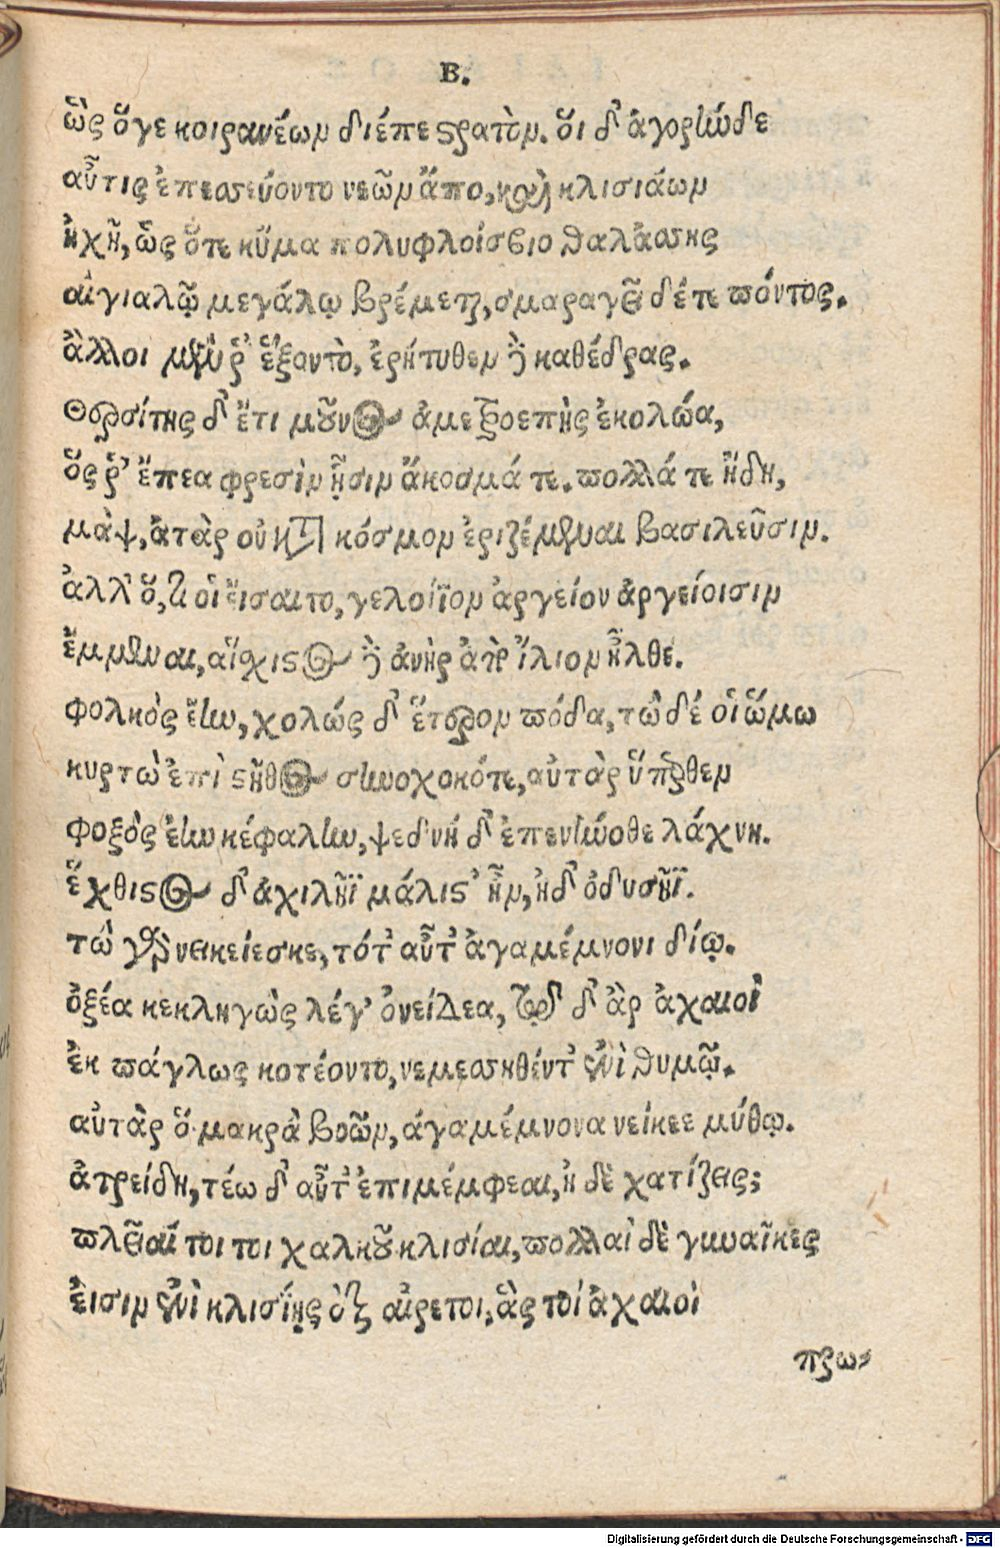 Β.
ὣς ὅγε κοιρανέων δίεπε στρατὸν. ὅι δ' ἀγορὴν δὲ
αὖτις ἐπεσσεύοντο νεῶν ἄπο, καὶ κλισιάων
ἠχῆ, ὣς ὅτε κῦμα πολυφλοίσβιο θαλάσσης
αἰγιαλῷ μεγάλῳ βρέμεται, σμαραγεῖ δέτε πόντος.
ἄλλοι μέν ῥ' ἕξοντὸ, ἐρήτυθεν ἢ καθέδρας.
Θερσίτης δ' ἔτι μοῦνος ἀμετροεπὴς ἐκολώα,
ὅς ῥ' ἔπεα φρεσὶν ᾗσιν ἄκοσμά τε. πολλά τε ἤδη,
μὰψ, ἀτὰρ οὐ κατὰ κόσμον ἐριζέμεναι βασιλεῦσιν.
ἀλλ' ὅ, τι οἱ ἔισαιτο, γελοίϊον ἀργείον ἀργείοισιν
ἔμμεναι, αἴχιστος ἢ ἀνὴρ ὑπὸ ἴλιον ἦλθε.
φολκὸς ἔην, χολώς δ' ἕτερον πόδα, τὼ δέ οἱ ὤμω
κυρτὼ ἐπὶ στῆθος συνοχοκότε, αὐτὰρ ὕπερθεν
φοξὸς ἔην κέφαλην, ψεδνή δ' ἐπενήνοθε λάχνη.
ἔχθιστος δ' ἀχιλῆϊ μάλιστ' ἦν, ἠδ' ὀδυσῆϊ.
τὼ γὰρ νεικείεσκε, τότ' αὖτ' ἀγαμέμνονι δίῳ.
ὀξέα κεκληγὼς λέγ' ὀνείδεα, τῷ δ' ἂρ ἀχαιοὶ
ἐκ πάγλως κοτέοντο, νεμεσσηθέντ' ἐνὶ θυμῷ.
αὐτὰρ ὅ μακρὰ βοῶν, ἀγαμέμνονα νείκεε μύθῳ.
ἀτρείδη, τέω δ' αὖτ' ἐπιμέμφεαι, ἠ δὲ χατίζεις;
πλεῖαί τοι τοι χαλκοῦ κλισίαι, πολλαὶ δὲ γυναῖκες
ἐισιν ἐνὶ κλισίῃς ἐξ αίρετοι, ἃς τοί ἀχαιοὶ
πρω-
Digitalisierung gefördert durch die Deutsche Forschungsgemeinschaft - DFG